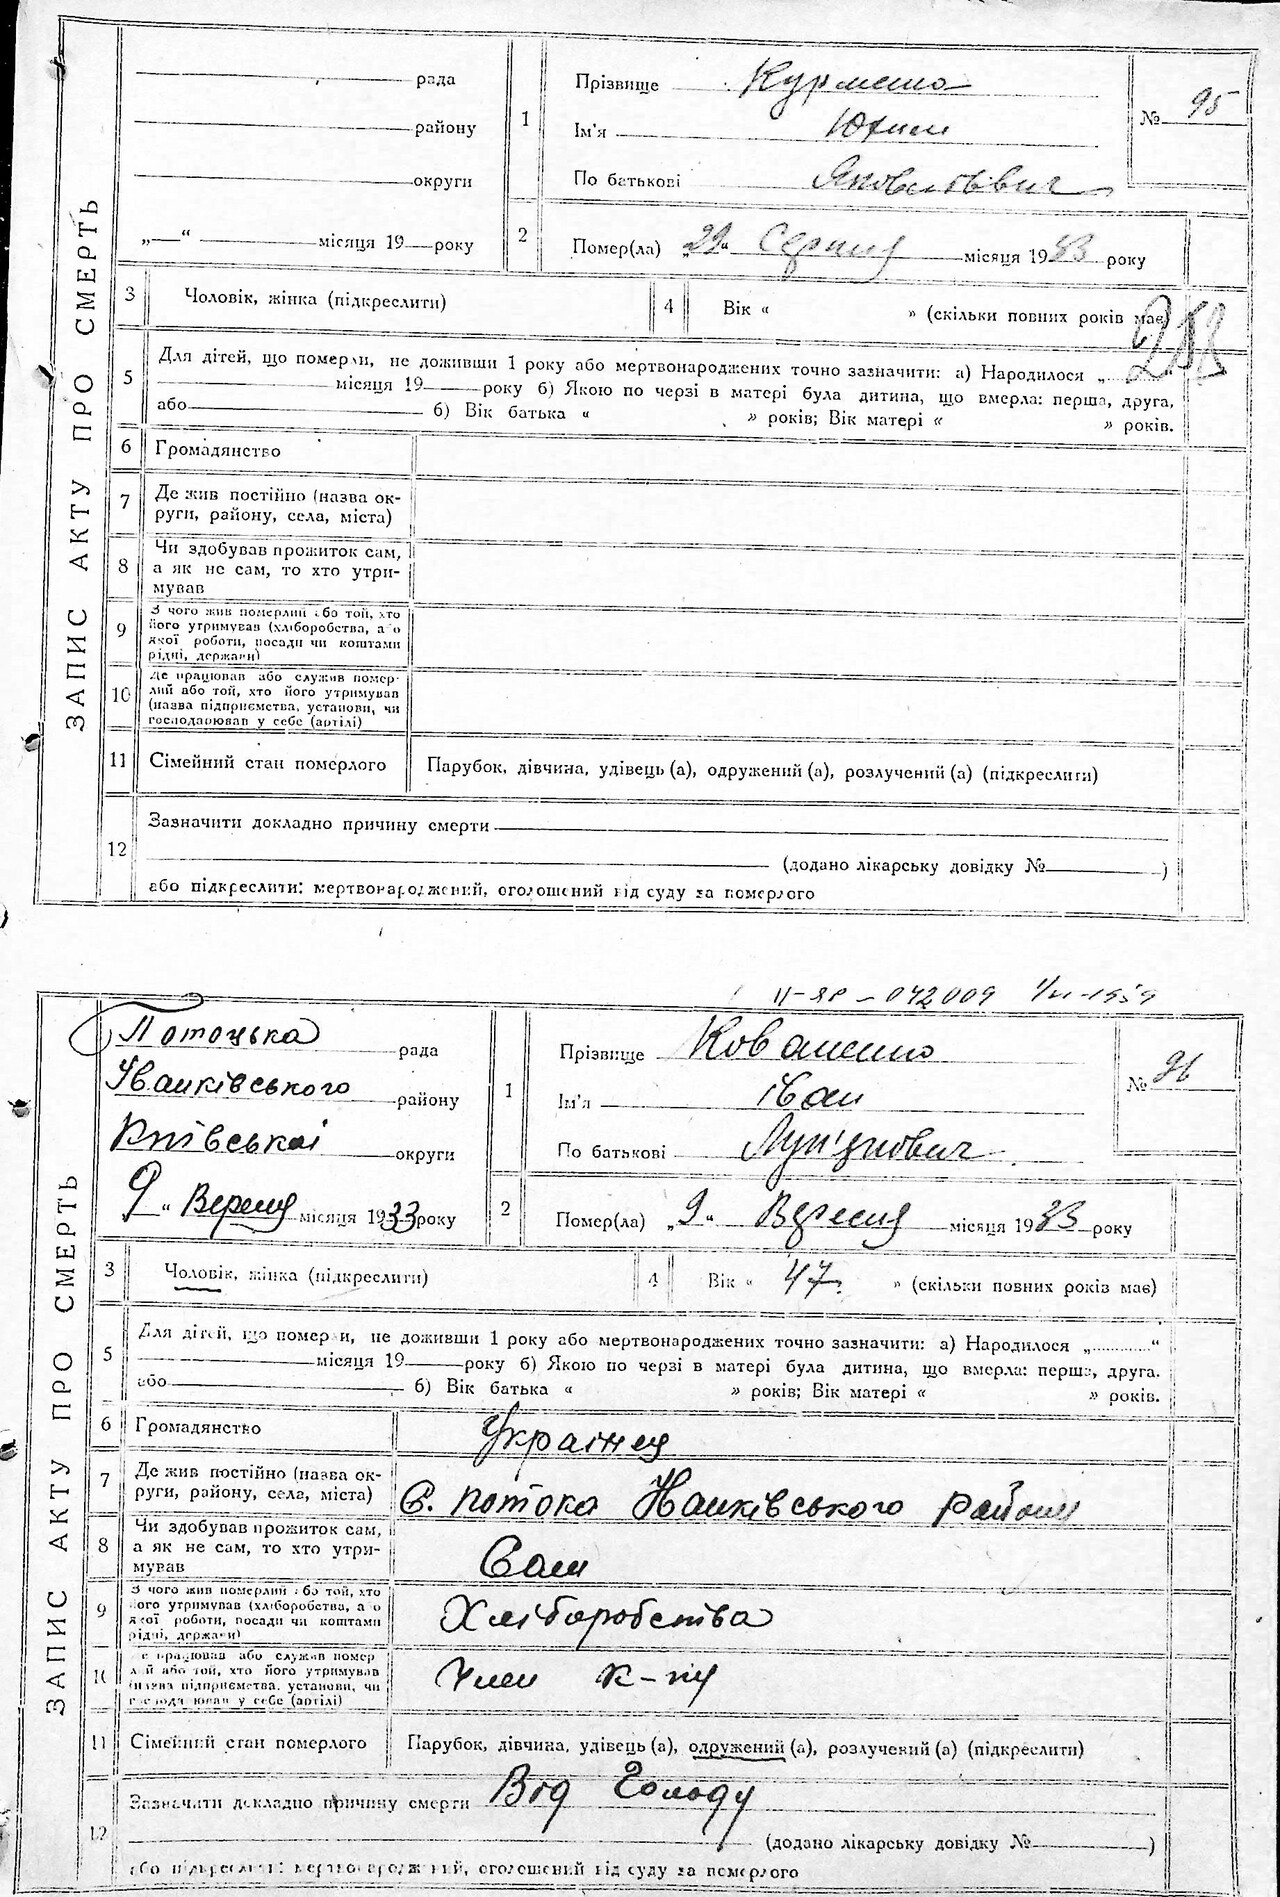 ЗАПИС АКТУ ПРО СМЕРТЬ
рада
району
округи
„ “ місяця 19 року
1
Прізвище Курменко
Ім'я Юхим
По батькові
№ 95
2
Помер(ла) „29“ Серпня місяця 1933 року
3
Чоловік, жінка (підкреслити)
4
Вік « » (скільки повних років має)
253
5
Для дітей, що померли, не доживши 1 року або мертвонароджених точно зазначити: а) Народилося „
місяця 19 року б) Якою по черзі в матері була дитина, що вмерла: перша, друга,
або б) Вік батька « » років; Вік матері « » років.
6
Громадянство
7
Де жив постійно (назва ок-
руги, району, села, міста)
8
Чи здобував прожиток сам,
а як не сам, то хто утри-
мував
9
З чого жив померлий або той, хто
його утримував (хліборобства, або
якої роботи, посади чи коштами
рідні, держави)
10
Де працював або служив помер-
лий або той, хто його утримував
(назва підприємства, установи, чи
господарював у себе (артілі)
11
Сімейний стан померлого
Парубок, дівчина, удівець (а), одружений (а), розлучений (а) (підкреслити)
12
Зазначити докладно причину смерти
(додано лікарську довідку № )
або підкреслити: мертвонароджений, оголошений від суду за померлого
II-ЯР - 042009
ЗАПИС АКТУ ПРО СМЕРТЬ
Потоцька рада
Іванківського району
Київської округи
9 “ Вересня місяця 1933 року
1
Прізвище Коваленко
Ім'я Іван
По батькові
№ 96
2
Помер(ла) „9“ Вересня місяця 1933 року
3
Чоловік, жінка (підкреслити)
4
Вік « 47 » (скільки повних років має)
5
Для дітей, що померли, не доживши 1 року або мертвонароджених точно зазначити: а) Народилося „ “
місяця 19 року б) Якою по черзі в матері була дитина, що вмерла: перша, друга.
або б) Вік батька « » років; Вік матері « » років.
6
Громадянство
Украінец
7
Де жив постійно (назва ок-
руги, району, села, міста)
С. Потока Іванківського району
8
Чи здобував прожиток сам,
а як не сам, то хто утри-
мував
Сам
9
З чого жив померлий або той, хто
його утримував (хліборобства, або
якої роботи, посади чи коштами
рідні, держави)
Хліборобства
10
Де працював або служив помер
лий або той, хто його утримував
(назва підприємства, установи, чи
господарював у себе (артілі)
Член к-пу
11
Сімейний стан померлого
Парубок, дівчина, удівець (а), одружений (а), розлучений (а) (підкреслити)
12
Зазначити докладно причину смерти Від Голоду
(додано лікарську довідку № )
або підкреслити: мертвонароджений, оголошений від суду за померлого